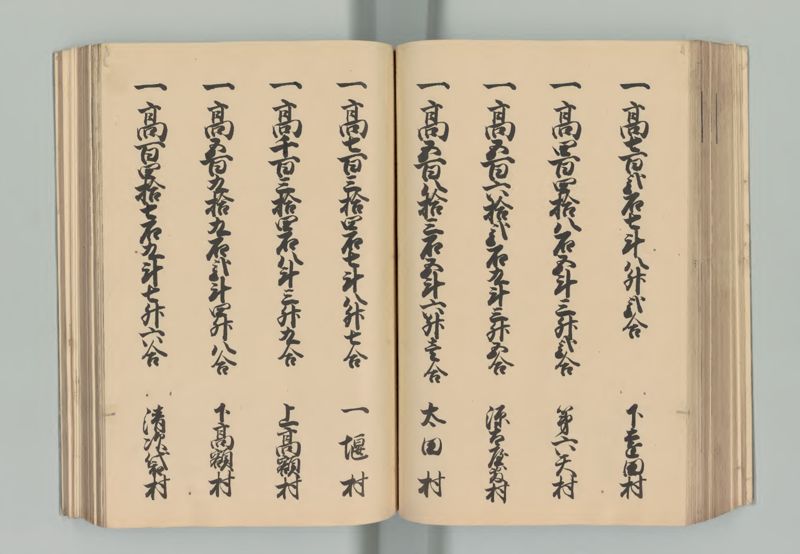 一高七百弐石七斗八升弐合 下至田村
一高四百四拾八石五斗三升弐合 第六天村
一高五百六拾弐石九斗三升五合 源太屋敷村
一高五百八拾三石五斗六升壱合 太田村
一高七百三拾四石七斗八升七合 一堰村
一高千百三拾四石八斗三升九合 上高額村
一高五百九拾九石弐斗四升八合 下高額村
一高百四拾七石九斗七升六合 清次袋村